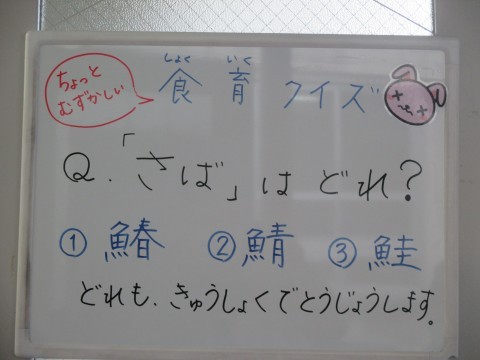 ちょっと
むずかしい
しょく いく
食育クイズ
Q.「さば」は どれ?
① 鰆 ② 鯖 ③ 鮭
どれも、きゅうしょくでとうじょうします。